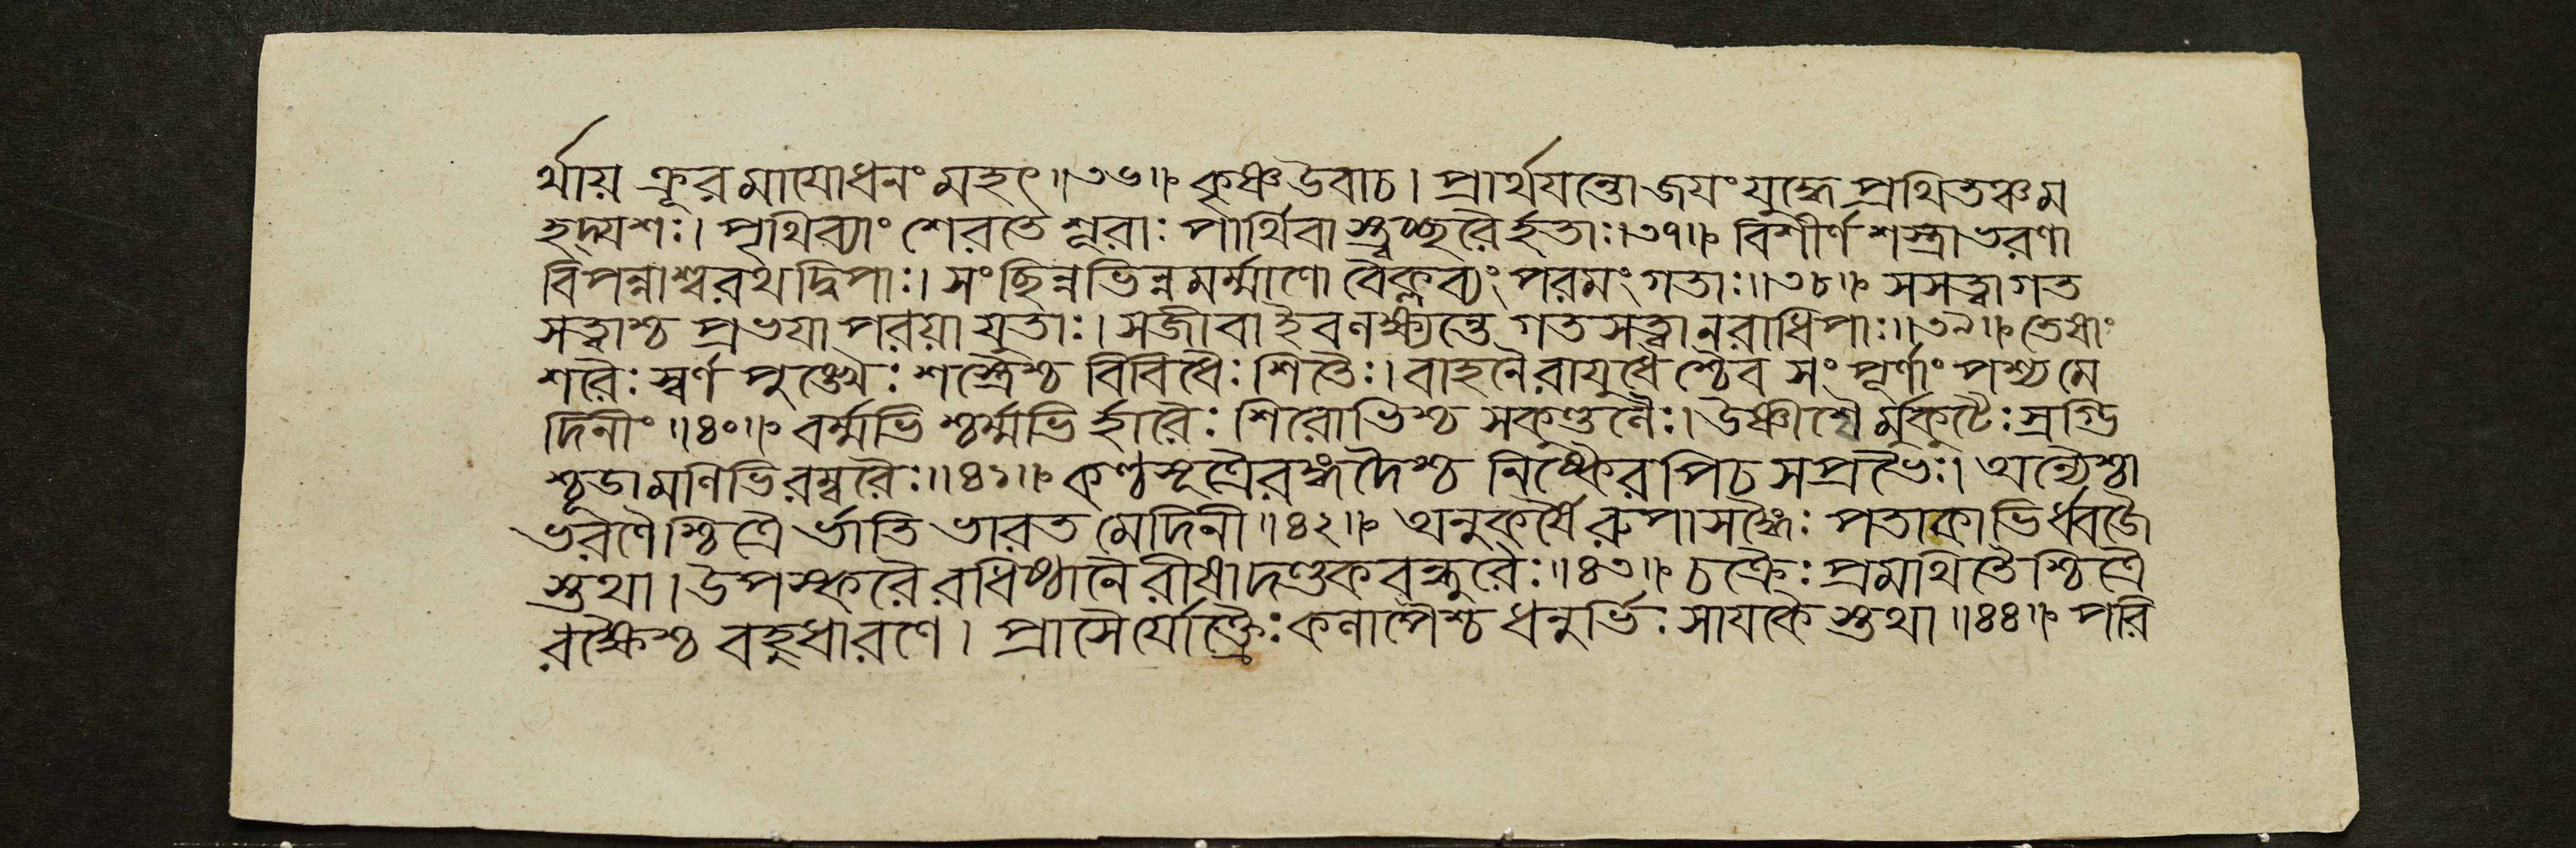 র্থায় ক্রূরমাযোধনং মহৎ॥৩৬॥ কৃষ্ণউবাচ। প্রার্থযন্তো জযং যুদ্ধে প্রথিতঞ্চম
হদ্যশঃ। পৃথিব্যাং শেরতে শূরাঃ পার্থিবাস্ত্বচ্ছরৈর্হতাঃ।৩৭॥ বিশীর্ণশস্ত্রাভরণা
বিপন্নাশ্বরথদ্বিপাঃ। সংছিন্নভিন্নমর্ম্মাণো বৈক্লব্যং পরমং গতাঃ॥৩৮॥ সসত্বাগত
সত্বাশ্চ প্রভযা পরয়া যুতাঃ। সজীবাইবলক্ষ্যন্তে গতসত্বানরাধিপাঃ॥৩৯॥ তেষাং
শরৈঃ স্বর্ণপুঙ্খৈঃ শস্ত্রৈশ্চ বিবিধৈঃ শিতৈঃ। বাহনৈরাযুধৈশ্চৈব সংপূর্ণাং পশ্যমে
দিনীং॥৪০॥ বর্ম্মভিশ্চর্ম্মভির্হারৈঃ শিরোভিশ্চ সকুণ্ডলৈঃ। উষ্ণীশৈর্মুকুটৈঃ স্রগ্ভি
শ্চূডামণিভিরম্বরৈঃ॥৪১॥ কণ্ঠসূত্রৈরঙ্গদৈশ্চ নিষ্কৈরপিচ সপ্রভৈঃ। অন্যৈশ্চা
ভরণৈশ্চিত্রৈর্ভাতি ভারত মেদিনী॥৪২॥ অনুকর্ষৈরুপাসঙ্গৈঃ পতাকাভির্ধ্বজৈ
স্তথা। উপস্করৈরধিষ্ঠানৈরীষাদণ্ডকবন্ধুরৈঃ॥৪৩॥ চক্রৈঃ প্রমথিতৈশ্চিত্রৈ
রক্ষৈশ্চ বহুধারণে। প্রাসৈর্যোক্ত্রৈঃ কলাপৈশ্চ ধনুর্ভিঃ সাযকৈস্তথা॥৪৪॥ পরি